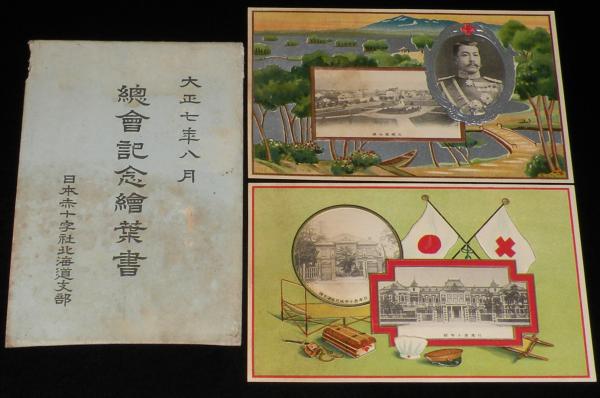 大正七年八月
總會記念繪葉書
日本赤十字社北海道支部